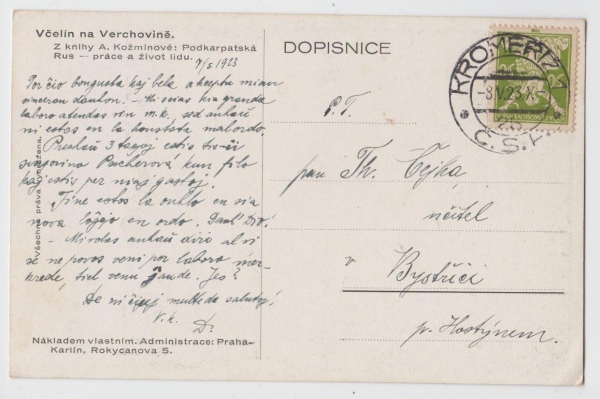 Včelín na Verchovině.
Z knihy A. Kožmínové: Podkarpatská
Rus — práce a život lidu.
7/5 1923
Por ĉio bongusta kaj bela akceptu mian
sinceran dankon. - Mi scias kia granda
laboro atendas vin m.k., sed ankaŭ
ni estos en la honesta malordo.
Preskaŭ 3 tagoj estis ĉe ni
sinjorino Pucherová kun filo
kaj estis per niaj gastoj.
Fine estos la tuta en sia
nova loĝejo en ordo. Dank' Di'!
- Mirolas ankaŭ diri al vi
se ne povos veni por laboro mer-
krede, tiel venu ĵaude. Jes?
De ni ĉiuj multede salutoj.
V.k.
D.
Všechna práva vyhražena.
Nákladem vlastním. Administrace: Praha-
Karlín, Rokycanova 5.
DOPISNICE
KROMĚŘÍŽ 1
-8.V.23.X-
Č.S.R.
25
P.T.
pan Th. Čejka,
učitel
v Bystřici
p. Hostýnem.